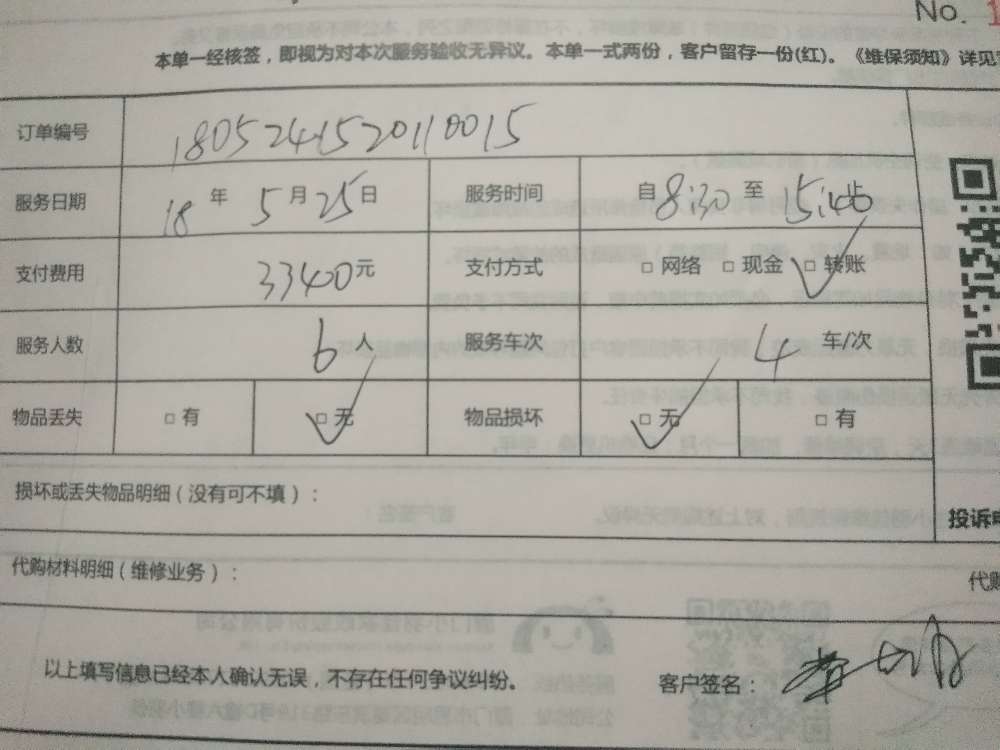 No. 1
本单一经核签，即视为对本次服务验收无异议。本单一式两份，客户留存一份(红)。《维保须知》详见
订单编号 1805241520110015
服务日期 18 年 5 月 25 日 服务时间 自 8:30 至 15:40 止
支付费用 33400 元 支付方式 □ 网络 □ 现金 □ 转账
服务人数 6 人 服务车次 4 车/次
物品丢失 □ 有 □ 无 物品损坏 □ 无 □ 有
损坏或丢失物品明细（没有可不填）：
投诉
代购材料明细（维修业务）：
代购
以上填写信息已经本人确认无误，不存在任何争议纠纷。 客户签名：